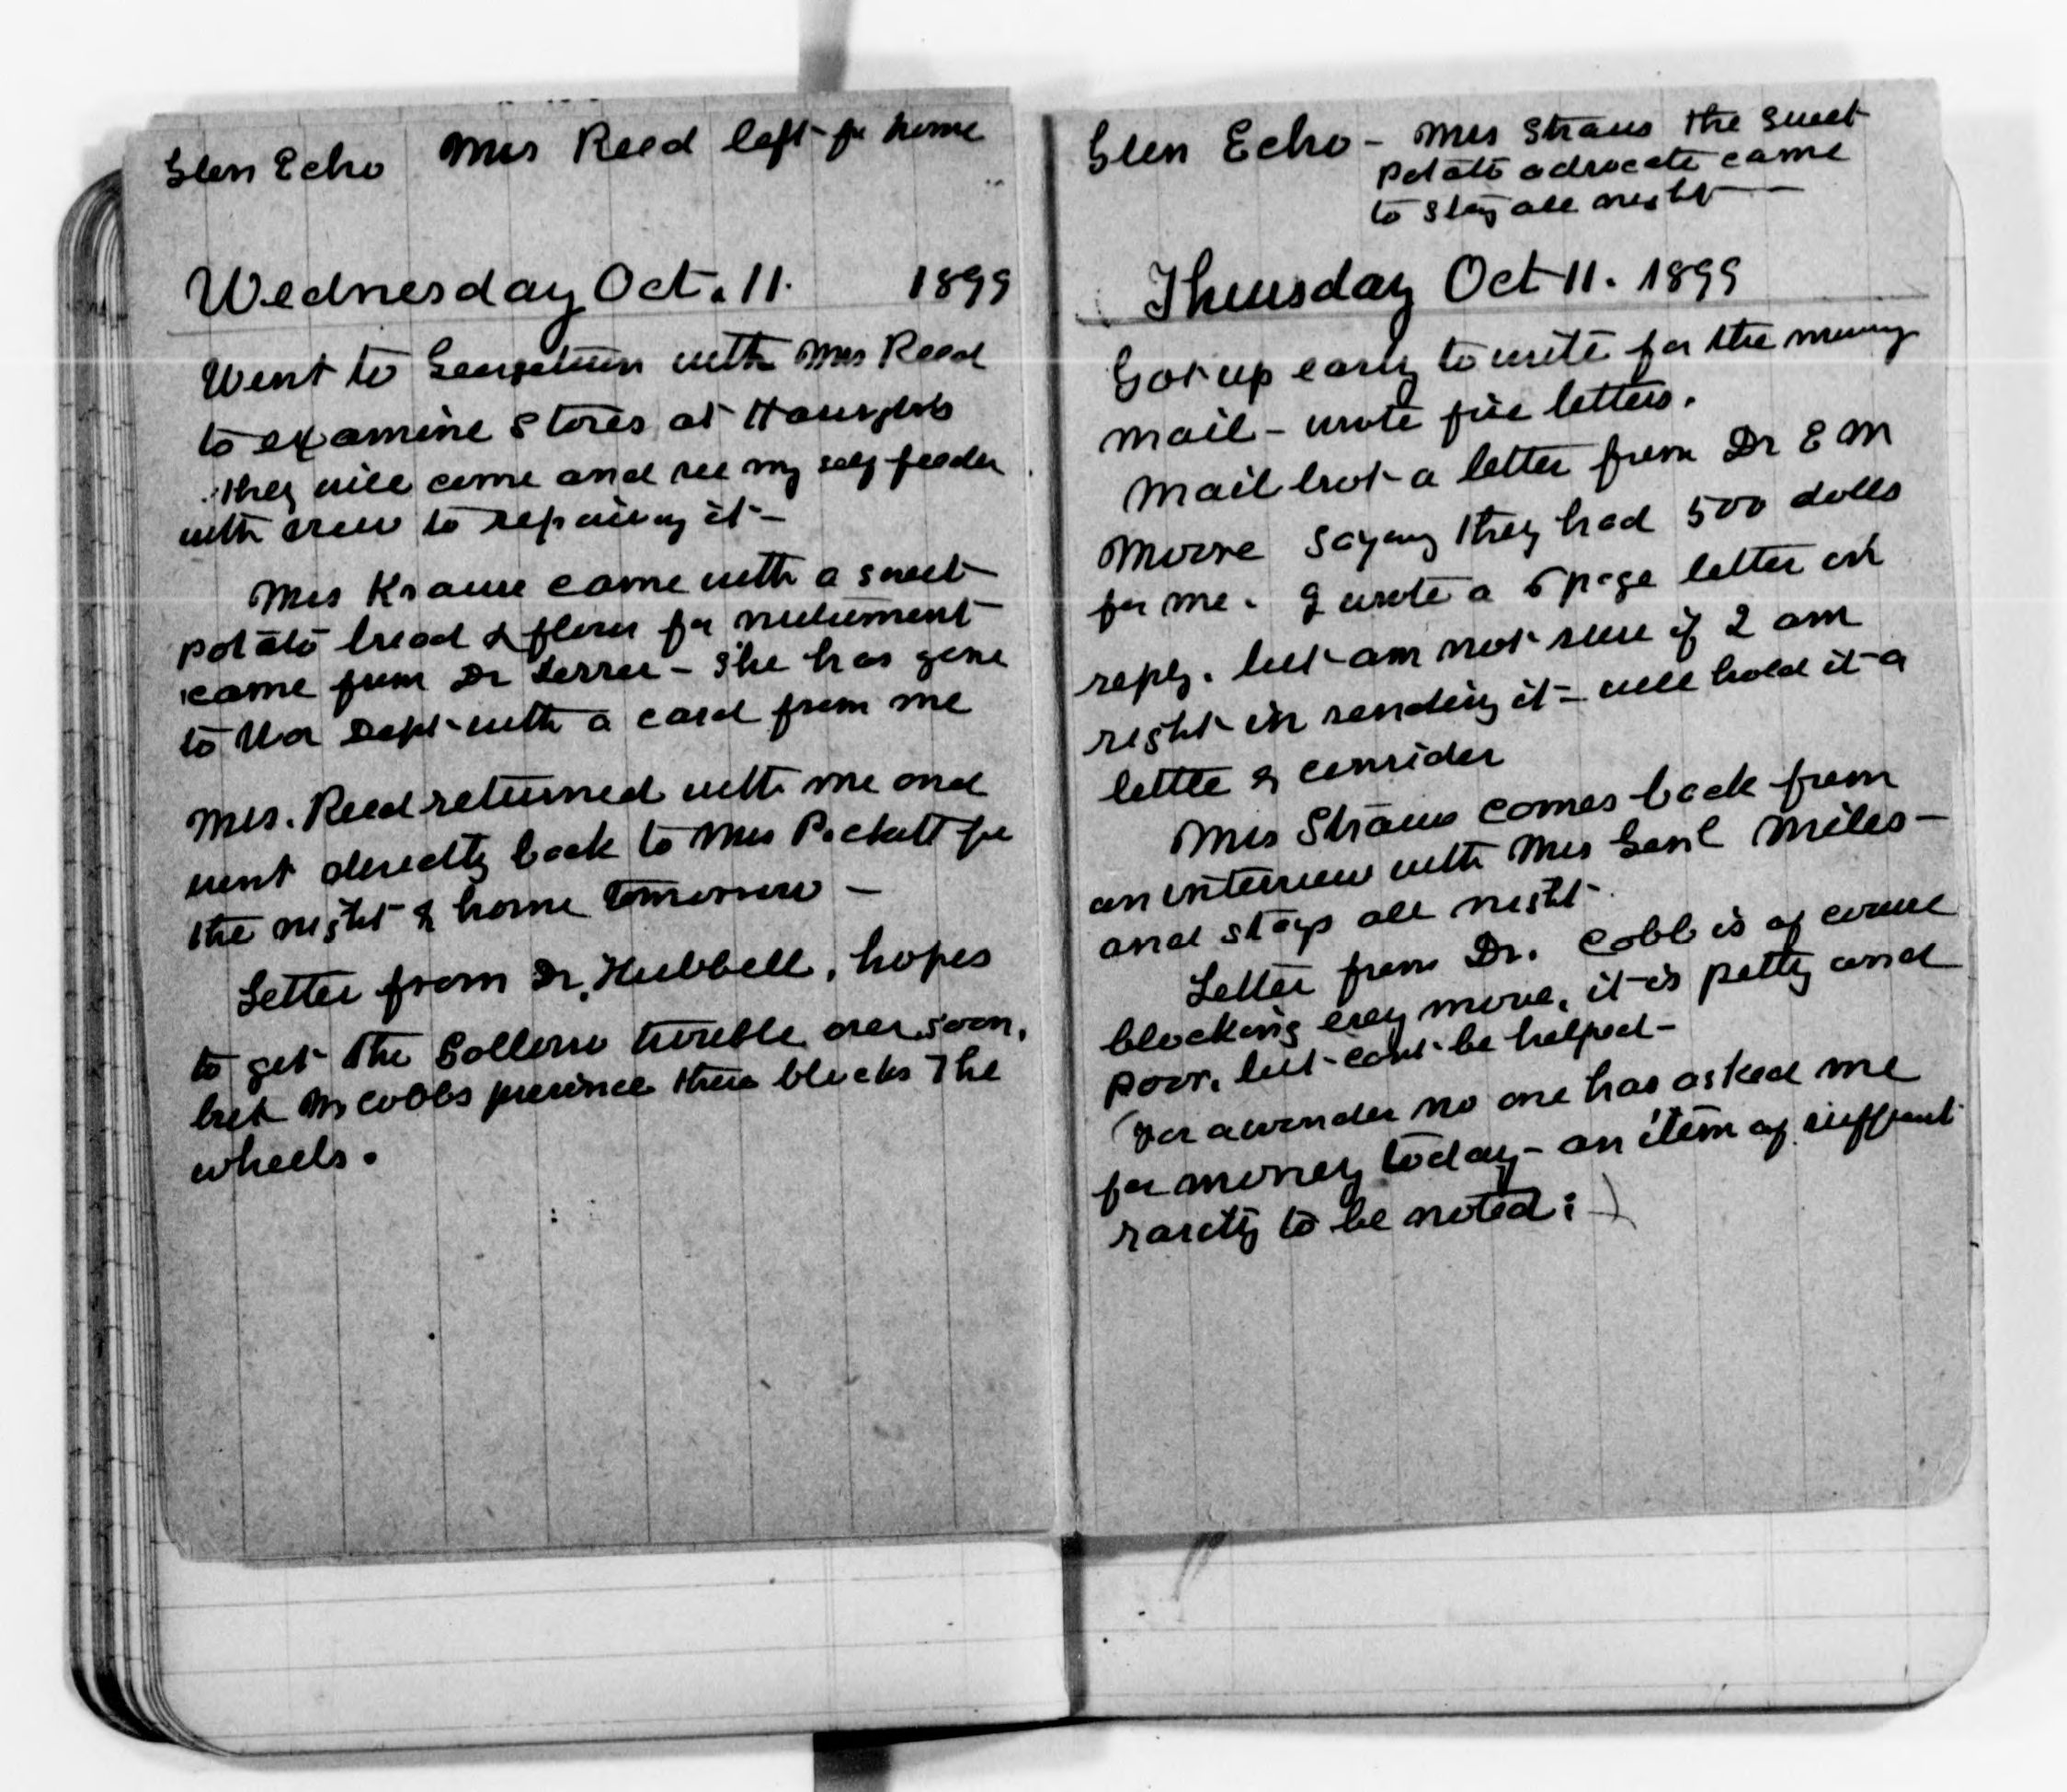 Glen Echo Mrs Reed left for home
Wednesday Oct. 11. 1899
Went to Georgetown with Mrs Reed
to examine stores at
they will come and see my self feeder
with view to repairing it -
Mrs Krause came with a sweet
potato bread & flour for
came from Dr - She has gone
to War Dept with a card from me
Mrs. Reed returned with me and
went directly back to Mrs Pickett for
the night & home tomorrow -
Letter from Dr. Hubbell, hopes
to get the trouble over soon,
but Mr Cobbs presence there blocks the
wheels.
Glen Echo - Mrs Straus the sweet
potato advocate came
to stay all night -
Thursday Oct 11. 1899
Got up early to write for the morning
mail - wrote five letters.
Mail brot a letter from Dr E M
Moore saying they had 500 dolls
for me. I wrote a 5 page letter in
reply. but am not sure if I am
right in sending it - will hold it a
little & consider
Mrs Straus comes back from
an interview with Mrs Genl Miles -
and stays all night.
Letter from Dr. Cobb is of course
blocking every move, it is petty and
poor, but cant be helped -
(For a wonder no one has asked me
for money today - an item of sufficient
rarity to be noted: )